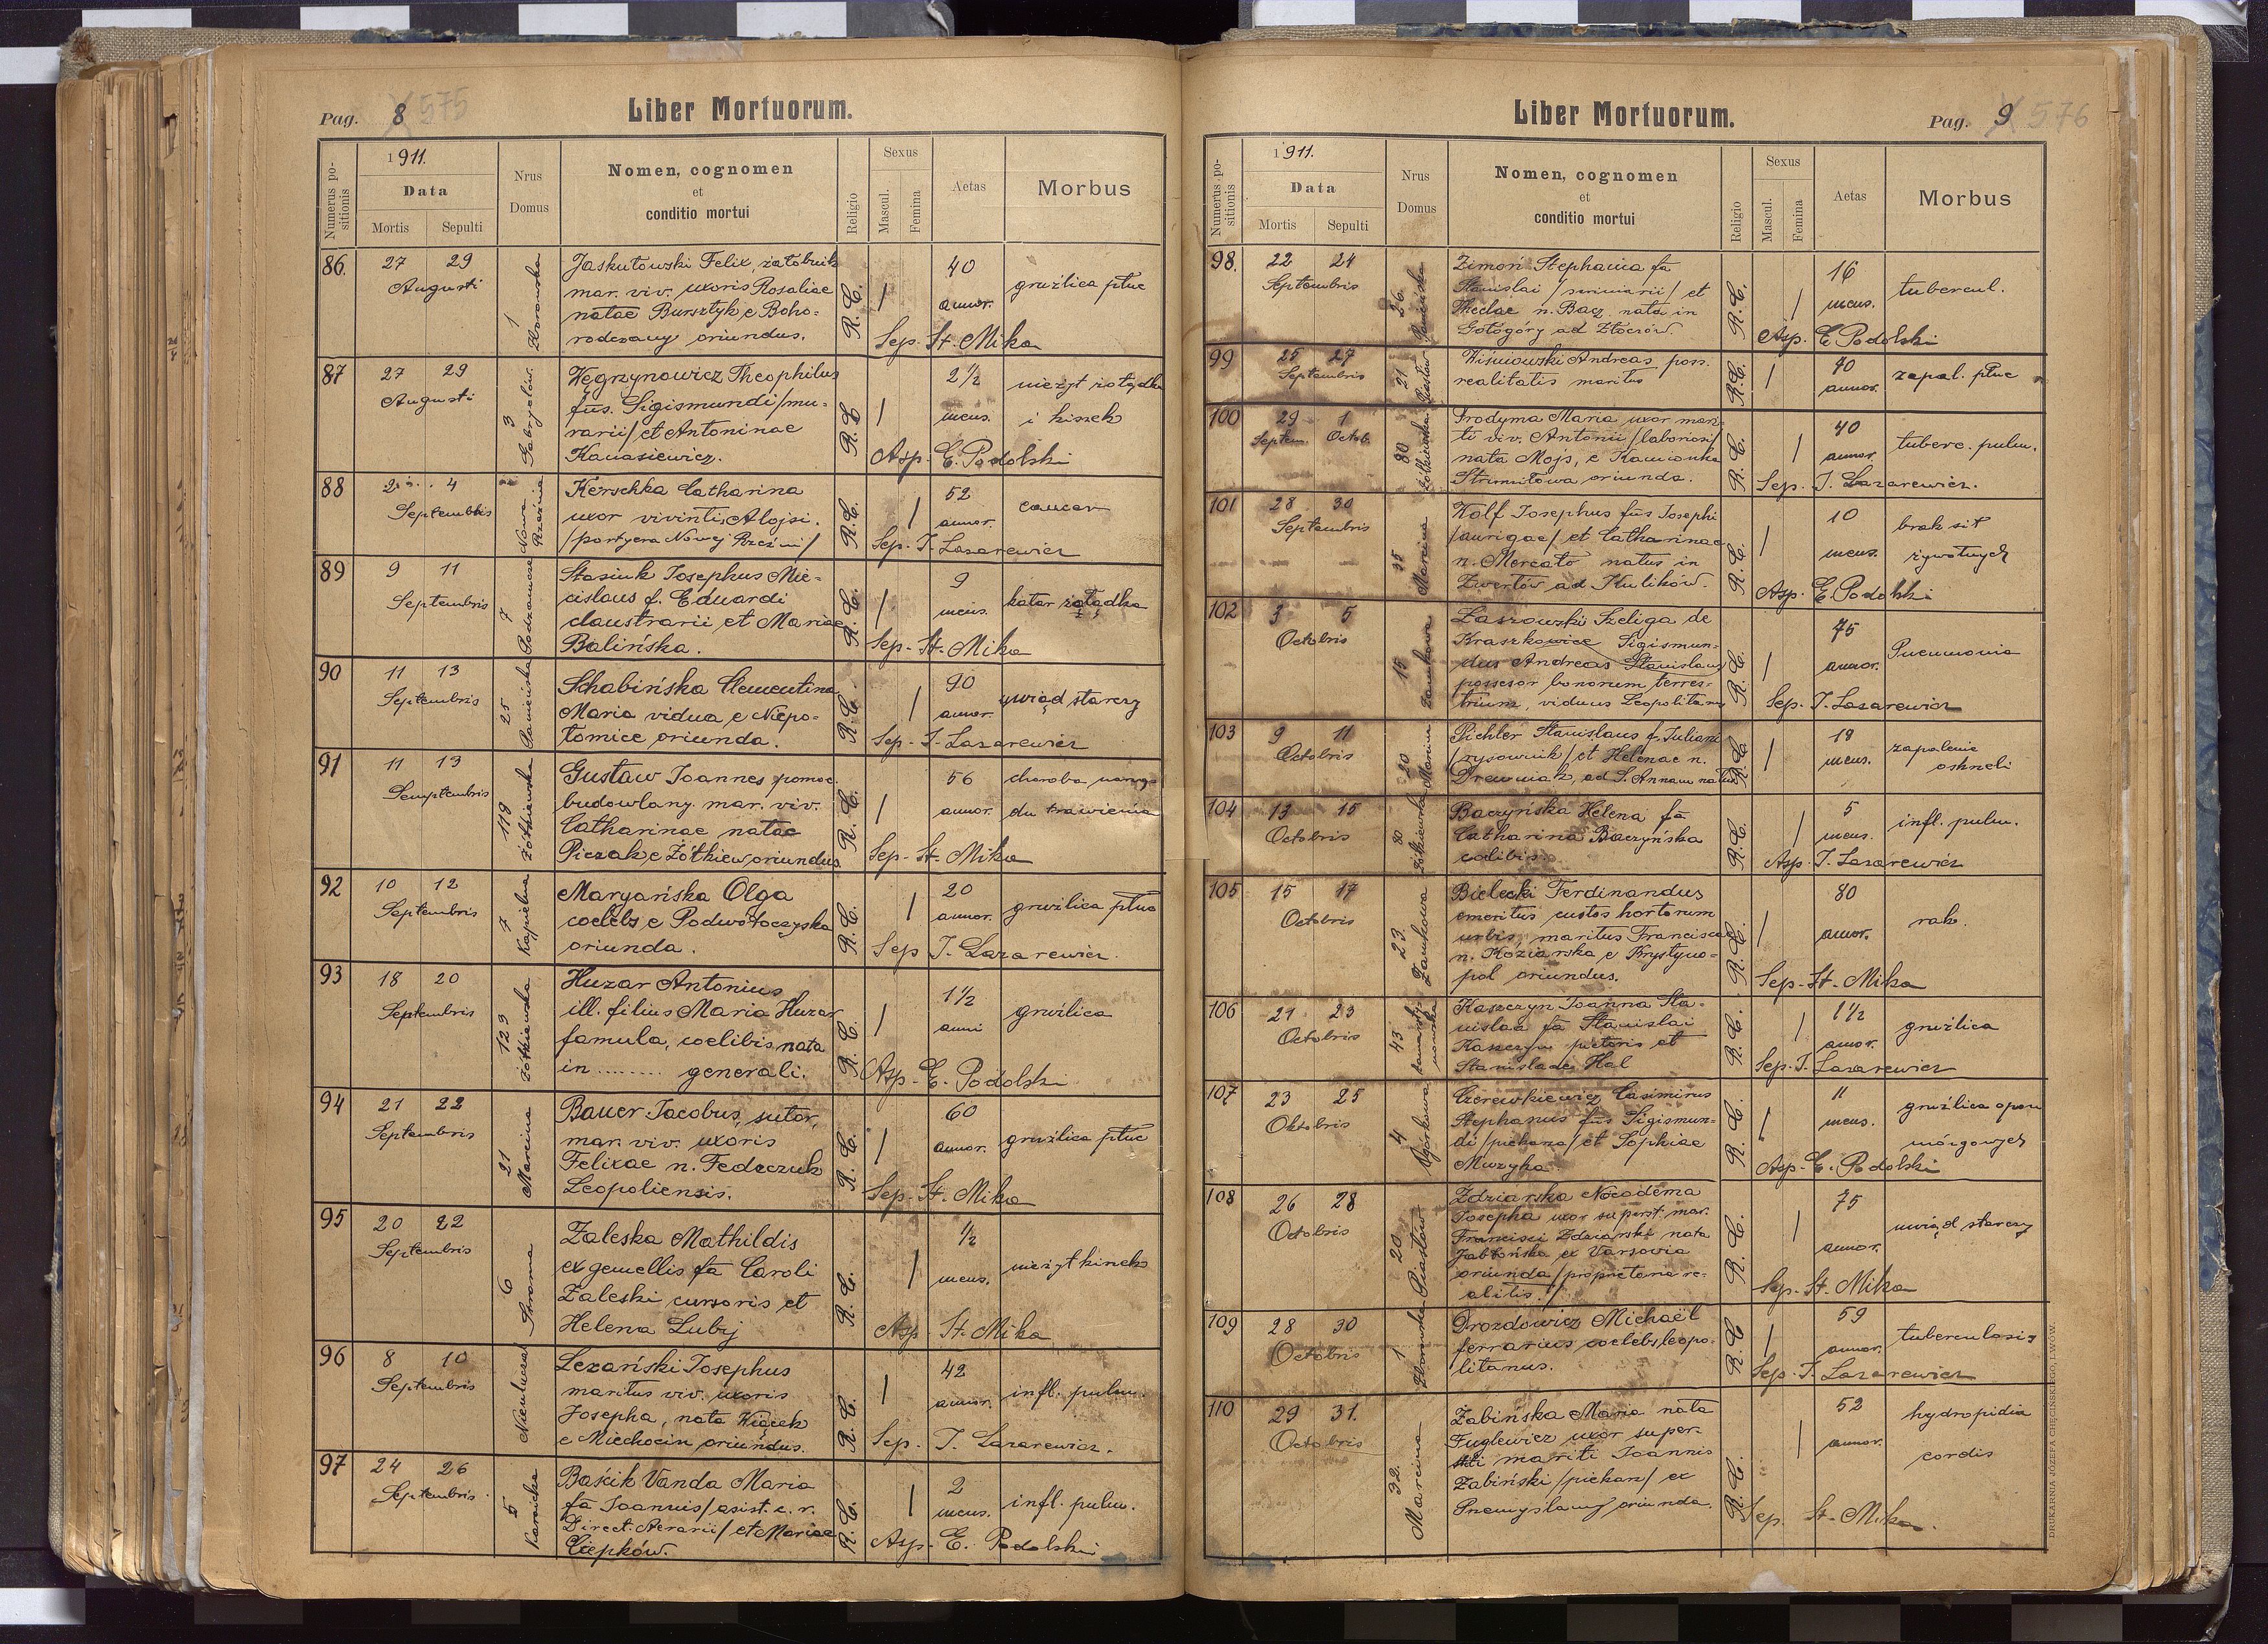 Pag. 8 575
Liber Mortuorum.
Numerus po-
sitionis
1911.
Data
Mortis Sepulti
Nrus
Domus
Nomen, cognomen
et
conditio mortui
Religio
Sexus
Mascul.
Femina
Aetas
Morbus
86. 27 29
Augusti
1
Jaskutowski Felix, żałobnik
mar. viv. uxoris Rosaliae
natae Bursztyk e Boho=
rodczany oriundus.
R. C. / 40
annor. gruźlica płuc
Sep. St. Mika
87 27 29
Augusti
3
Gabryelów.
Węgrzynowicz Theophilus
fus. Sigismundi /mu-
rarii/ et Antoninae
Kanasiewicz.
R. C / 2 1/2
mens. nieżyt żołądka
i kiszek
Asp. E. Podolski
88 4
Septembris
Nowa
Rzeźnia
Kerschka Catharina
uxor viventis Alojsi.
/portyera Nowej Rzeźni/
R. C. / 52
annor. cancer
Sep. J. Lazarewicz
89 9 11
Septembris
7
Podzamcze
Stasiuk Josephus Mie=
cislaus f. Eduardi
claustrarii et Mariae
Balińska.
R. C. / 9
mens. katar żołądka
Sep. St. Mika
90 11 13
Septembris
25
Panieńska
Schabińska Clementina
Maria vidua e Niepo=
łomice oriunda.
R. C. / 90
annor. uwiąd starczy
Sep. J. Lazarewicz
91 11 13
Semptembris
118
Żółkiewska
Gustaw Joannes pomoc.
budowlany. mar. viv.
Catharinae natae
Pieczak e Żółkiew oriundus
R. C. / 56
annor. choroba narzą-
du trawienia
Sep. St. Mika
92 10 12
Septembris
7
Kąpielna
Maryańska Olga
coelebs e Podwołoczyska
oriunda.
R. C. / 20
annor. gruźlica płuc
Sep J. Lazarewicz.
93 18 20
Septembris
123
Żółkiewska
Huzar Antonius
ill. filius Maria Huzar
famula, coelibis nata
in ........ generali.
R. C. / 1 1/2
anni gruźlica
Asp. E. Podolski
94 21 22
Septembris
21
Marcina
Bauer Jacobus, sutor,
mar. viv. uxoris
Felixae n. Fedaczuk
Leopoliensis.
R. C. / 60
annor. gruźlica płuc
Sep. St. Mika
95 20 22
Septembris
6
Stroma
Zaleska Mathildis
ex gemellis fa Caroli
Zaleski cursoris et
Helena Lubij
R. C. / 1/2
mens. nieżyt kiszek
Asp. St. Mika
96 8 10
Septembris
Lezański Josephus
maritus viv. uxoris
Josepha, nata Więcek
e Miechocin oriundus.
R. C. / 42
annor. infl. pulm.
Sep. J. Lazarewicz.
97 24 26
Septembris
5
Baścik Vanda Maria
fa Joannis /asist. c. r.
Direct. Aerarii/ et Mariae
Ciepków.
R. C. / 2
mens. infl. pulm.
Asp. E. Podolski
Liber Mortuorum.
Pag. 9 576
Numerus po-
sitionis
1911.
Data
Mortis Sepulti
Nrus
Domus
Nomen, cognomen
et
conditio mortui
Religio
Sexus
Mascul.
Femina
Aetas
Morbus
98. 22 24
Septembris
26.
Panieńska
Zimoń Stephania fa
Stanislai /scriniarii/ et
Theclae n. Bacz nata in
Gołogóry ad Złoczów.
R. C. / 16
mens. tubercul.
Asp. E. Podolski
99 25 27
Septembris
21
Piastów
Wiśniowski Andreas poss.
realitatis maritus
R. C. / 70
annor. zapal. płuc
100 29 1
Septem. Octob.
80
Żółkiewska
Prodyma Maria uxor mari-
ti viv. Antonii /laboriosi/
nata Mojs, e Kamionka
Strumiłowa oriunda.
R. C. / 40
annor. tuberc. pulm.
Sep. J. Lazarewicz.
101 28 30
Septembris
35
Marcina
Wolf Josephus fus Josephi
/aurigae/ et Catharinae
n. Mercato natus in
Zwertów ad Kulików.
R. C. / 10
mens. brak sił
żywotnych
Asp. E. Podolski
102 3 5
Octobris
15
Zamkowa
Laszowski Szeliga de
Kraszkowice Sigismun=
dus Andreas Stanislaus
possesor bonorum terres-
trium, viduus Leopolitanus
R. C. / 75
annor. Pneumonia
Sep. J. Lazarewicz
103 9 11
Octobris
20
Marcina
Pichler Stanislaus f. Juliani
/rysownik/ et Helenae n.
Drewniak, ad S. Annam natus
R. C. / 18
mens. zapalenie
oskrzeli
104 13 15
Octobris
80
Żółkiewska
Baczyńska Helena fa
Catharina Baczyńska
coelibis.
R. C. / 5
mens. infl. pulm.
Asp. J. Lazarewicz
105 15 17
Octobris
23.
Zamkowa
Bielecki Ferdinandus
emeritus custos hortorum
urbis, maritus Franciscae
n. Koziarska e Krystyno=
pol oriundus.
R. C. / 80
annor. rak.
Sep. St. Mika
106 21 23
Octobris
43
Kaszczyn Joanna Sta=
nislaa fa Stanislai
Kaszczyn pictoris et
Stanislade Hal
R. C. / 1 1/2
annor. gruźlica
Sep. J. Lazarewicz
107 23 25
Oktobris
4
Ogórkowa
Czerewkiewicz Casimirus
Stephanus fus Sigismun-
di /piekarza/ et Sophiae
Muzyka
R. C. / 11
mens. gruźlica opon
mózgowych
Asp. E. Podolski
108 26 28
Octobris
20
Piastów
Zdziarska Nocodema
Josepha uxor superst. mar.
Francisci Zdziarski nata
Jabłońska ex Varsovia
oriunda /proprietaria re-
alitis./
R. C. / 75
annor. uwiąd starczy
Sep. St. Mika
109 28 30
Octobris
1
Drozdowicz Michaël
ferrarius coelebs leopo-
litanus.
R. C / 59
annor. tuberculosis
Sep. J. Lazarewicz
110 29 31.
Octobris
32.
Marcina
Żabińska Maria nata
Fuglewicz uxor super-
sti mariti Joannis
Żabiński /piekarz/ ex
Przemyślany oriunda.
R. C. / 52
annor. hydropidia
cordis
Sep. St. Mika.
DRUKARNIA JÓZEFA CHĘCIŃSKIEGO, LWÓW.